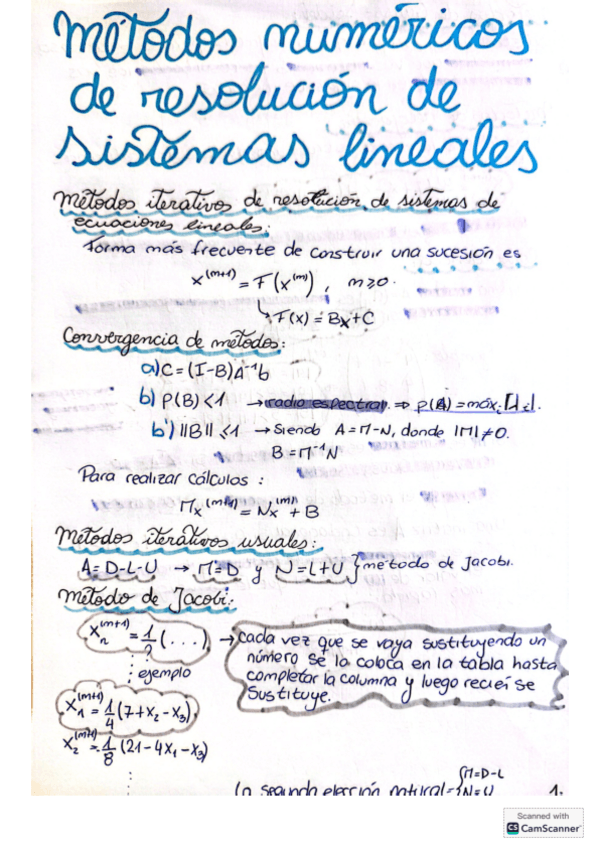 Métodos numéricos
de resolución de
sistemas lineales
Métodos iterativos de resolución de sistemas de
ecuaciones lineales:
Forma más frecuente de construir una sucesión es
x^(m+1) = F(x^(m)), m≥0.
↳ F(x) = Bx+C
Convergencia de métodos:
a) C = (I-B)A⁻¹b
b) ρ(B) < 1 → radio espectral ⇒ ρ(A) = máx
b') ||B|| < 1 → siendo A = M-N, donde |M| ≠ 0.
B = M⁻¹N
Para realizar cálculos:
Mx^(m+1) = Nx^(m) + B
Métodos iterativos usuales:
A = D-L-U → M=D y N=L+U } método de Jacobi.
Método de Jacobi:
x_n^(m+1) = 1/?(...) → cada vez que se vaya sustituyendo un
número se la coloca en la tabla hasta
completar la columna y luego recien se
sustituye.
: ejemplo
x_1^(m+1) = 1/4 (7+x_2-x_3)
x_2^(m+1) = 1/8 (21-4x_1-x_3)
La segunda elección natural = { M=D-L
N=U
1.
Scanned with
CS CamScanner